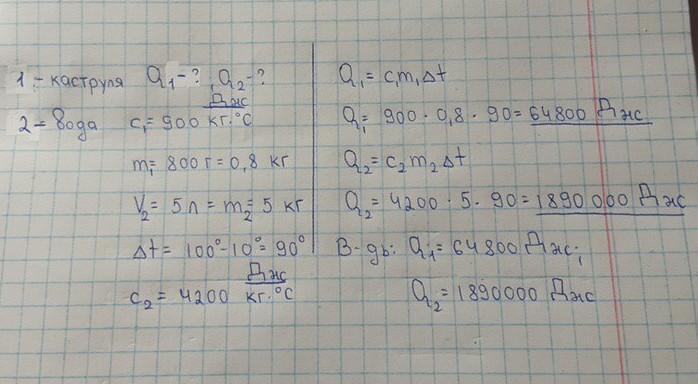 1 - каструля Q₁ - ?, Q₂ - ?
2 - вода c₁ = 900 Дж/кг·°C
m₁ = 800 г = 0,8 кг
V₂ = 5 л = m₂ = 5 кг
Δt = 100° - 10° = 90°
c₂ = 4200 Дж/кг·°C
Q₁ = c₁m₁Δt
Q₁ = 900 · 0,8 · 90 = 64800 Дж
Q₂ = c₂m₂Δt
Q₂ = 4200 · 5 · 90 = 1890 000 Дж
В-дь: Q₁ = 64800 Дж;
Q₂ = 1890000 Дж